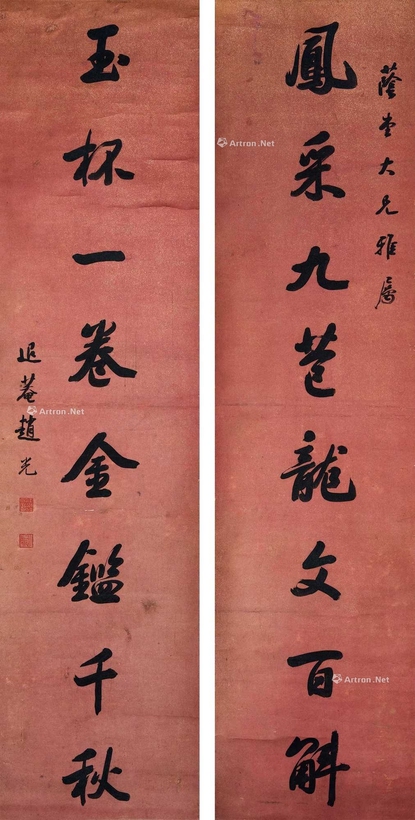 蔭堂大兄雅属
鳳采九苞龍文百斛
玉杯一卷金鑑千秋
退菴趙光
Artron.Net
Artron.Net
Artron.Net